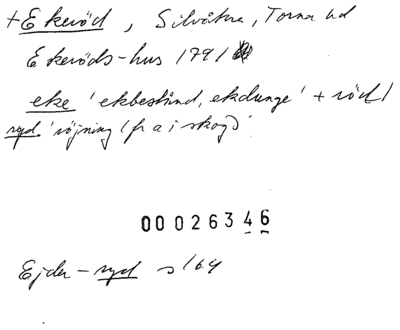 + Ekeröd, Silvåkra, Torna hd
Ekeröds-hus 1791
eke 'ekbestånd, ekdunge' + röd /
ryd 'röjning (fr a i skog)'
00026346
Ejder-ryd s 164